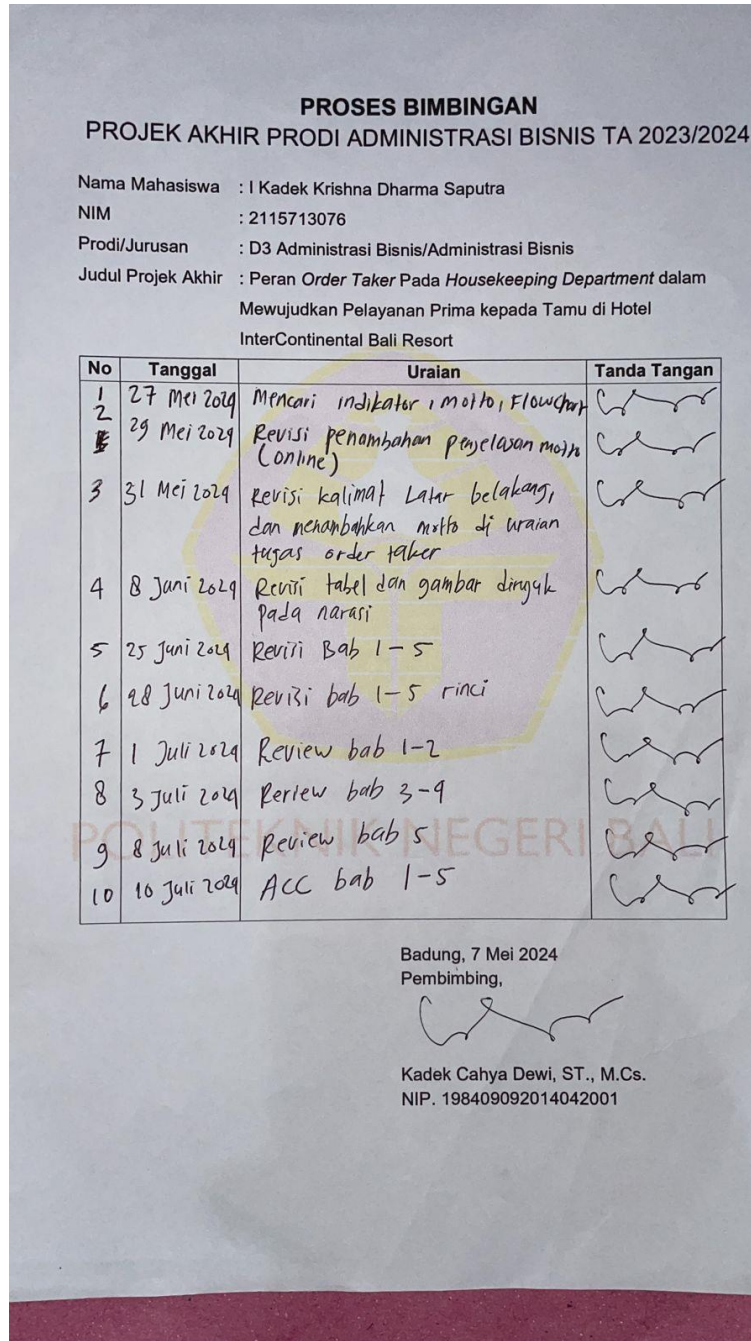 PROSES BIMBINGAN
PROJEK AKHIR PRODI ADMINISTRASI BISNIS TA 2023/2024
Nama Mahasiswa : I Kadek Krishna Dharma Saputra
NIM : 2115713076
Prodi/Jurusan : D3 Administrasi Bisnis/Administrasi Bisnis
Judul Projek Akhir : Peran Order Taker Pada Housekeeping Department dalam
Mewujudkan Pelayanan Prima kepada Tamu di Hotel
InterContinental Bali Resort
No Tanggal Uraian Tanda Tangan
1 27 Mei 2024 Mencari indikator, motto, Flowchart
2 29 Mei 2024 Revisi penambahan penjelasan motto
(online)
3 31 Mei 2024 Revisi kalimat Latar belakang,
dan menambahkan motto di uraian
tugas order taker
4 8 Juni 2024 Revisi tabel dan gambar dirujuk
pada narasi
5 25 Juni 2024 Revisi Bab 1-5
6 28 Juni 2024 Revisi bab 1-5 rinci
7 1 Juli 2024 Review bab 1-2
8 3 Juli 2024 Review bab 3-4
POLITEKNIK NEGERI BALI
9 8 Juli 2024 Review bab 5
10 10 Juli 2024 ACC bab 1-5
Badung, 7 Mei 2024
Pembimbing,
Kadek Cahya Dewi, ST., M.Cs.
NIP. 198409092014042001